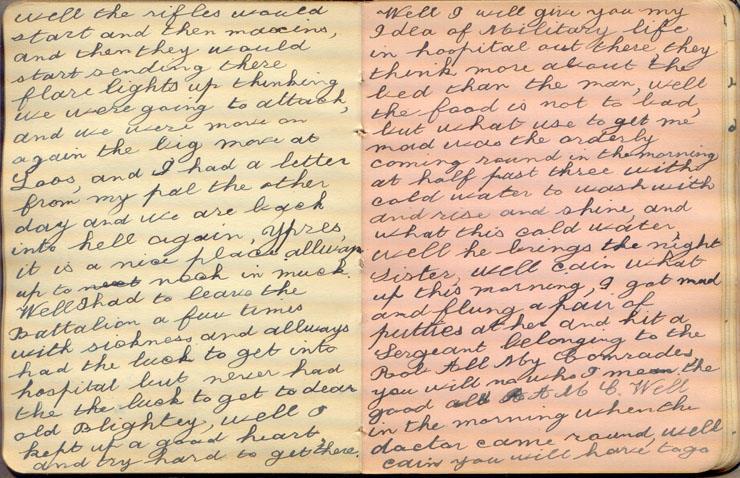 well the rifles would
start and then maxins,
and then they would
start sending there
flare lights up thinking
we were going to attack,
and we were move on
again the big move at
Loos, and I had a letter
from my pal the other
day and we are back
into hell again, Ypres,
it is a nice place allways
up to neck in muck.
Well I had to leave the
Battalion a fuw times
with sickness and allways
had the luck to get into
hospital but never had
the the luck to get to dear
old Blightey, well I
kept up a good heart
and try hard to get there.
Well I will give you my
Idea of Military life
in hospital out there they
think more about the
bed than the man, well
the food is not to bad,
but what use to get me
mad was the orderly
coming round in the morning
at half past three with
cold water to wash with
and rise and shine, and
what this cold water,
well he brings the night
Sister, well Cain what
up this morning, I got mad
and flung a pair of
putties at her and hit a
Sergeant belonging to the
Rob All My Comrades
you will no who I mean the
good old R A M C. Well
in the morning when the
doctor came round, well
Cain you will have to go